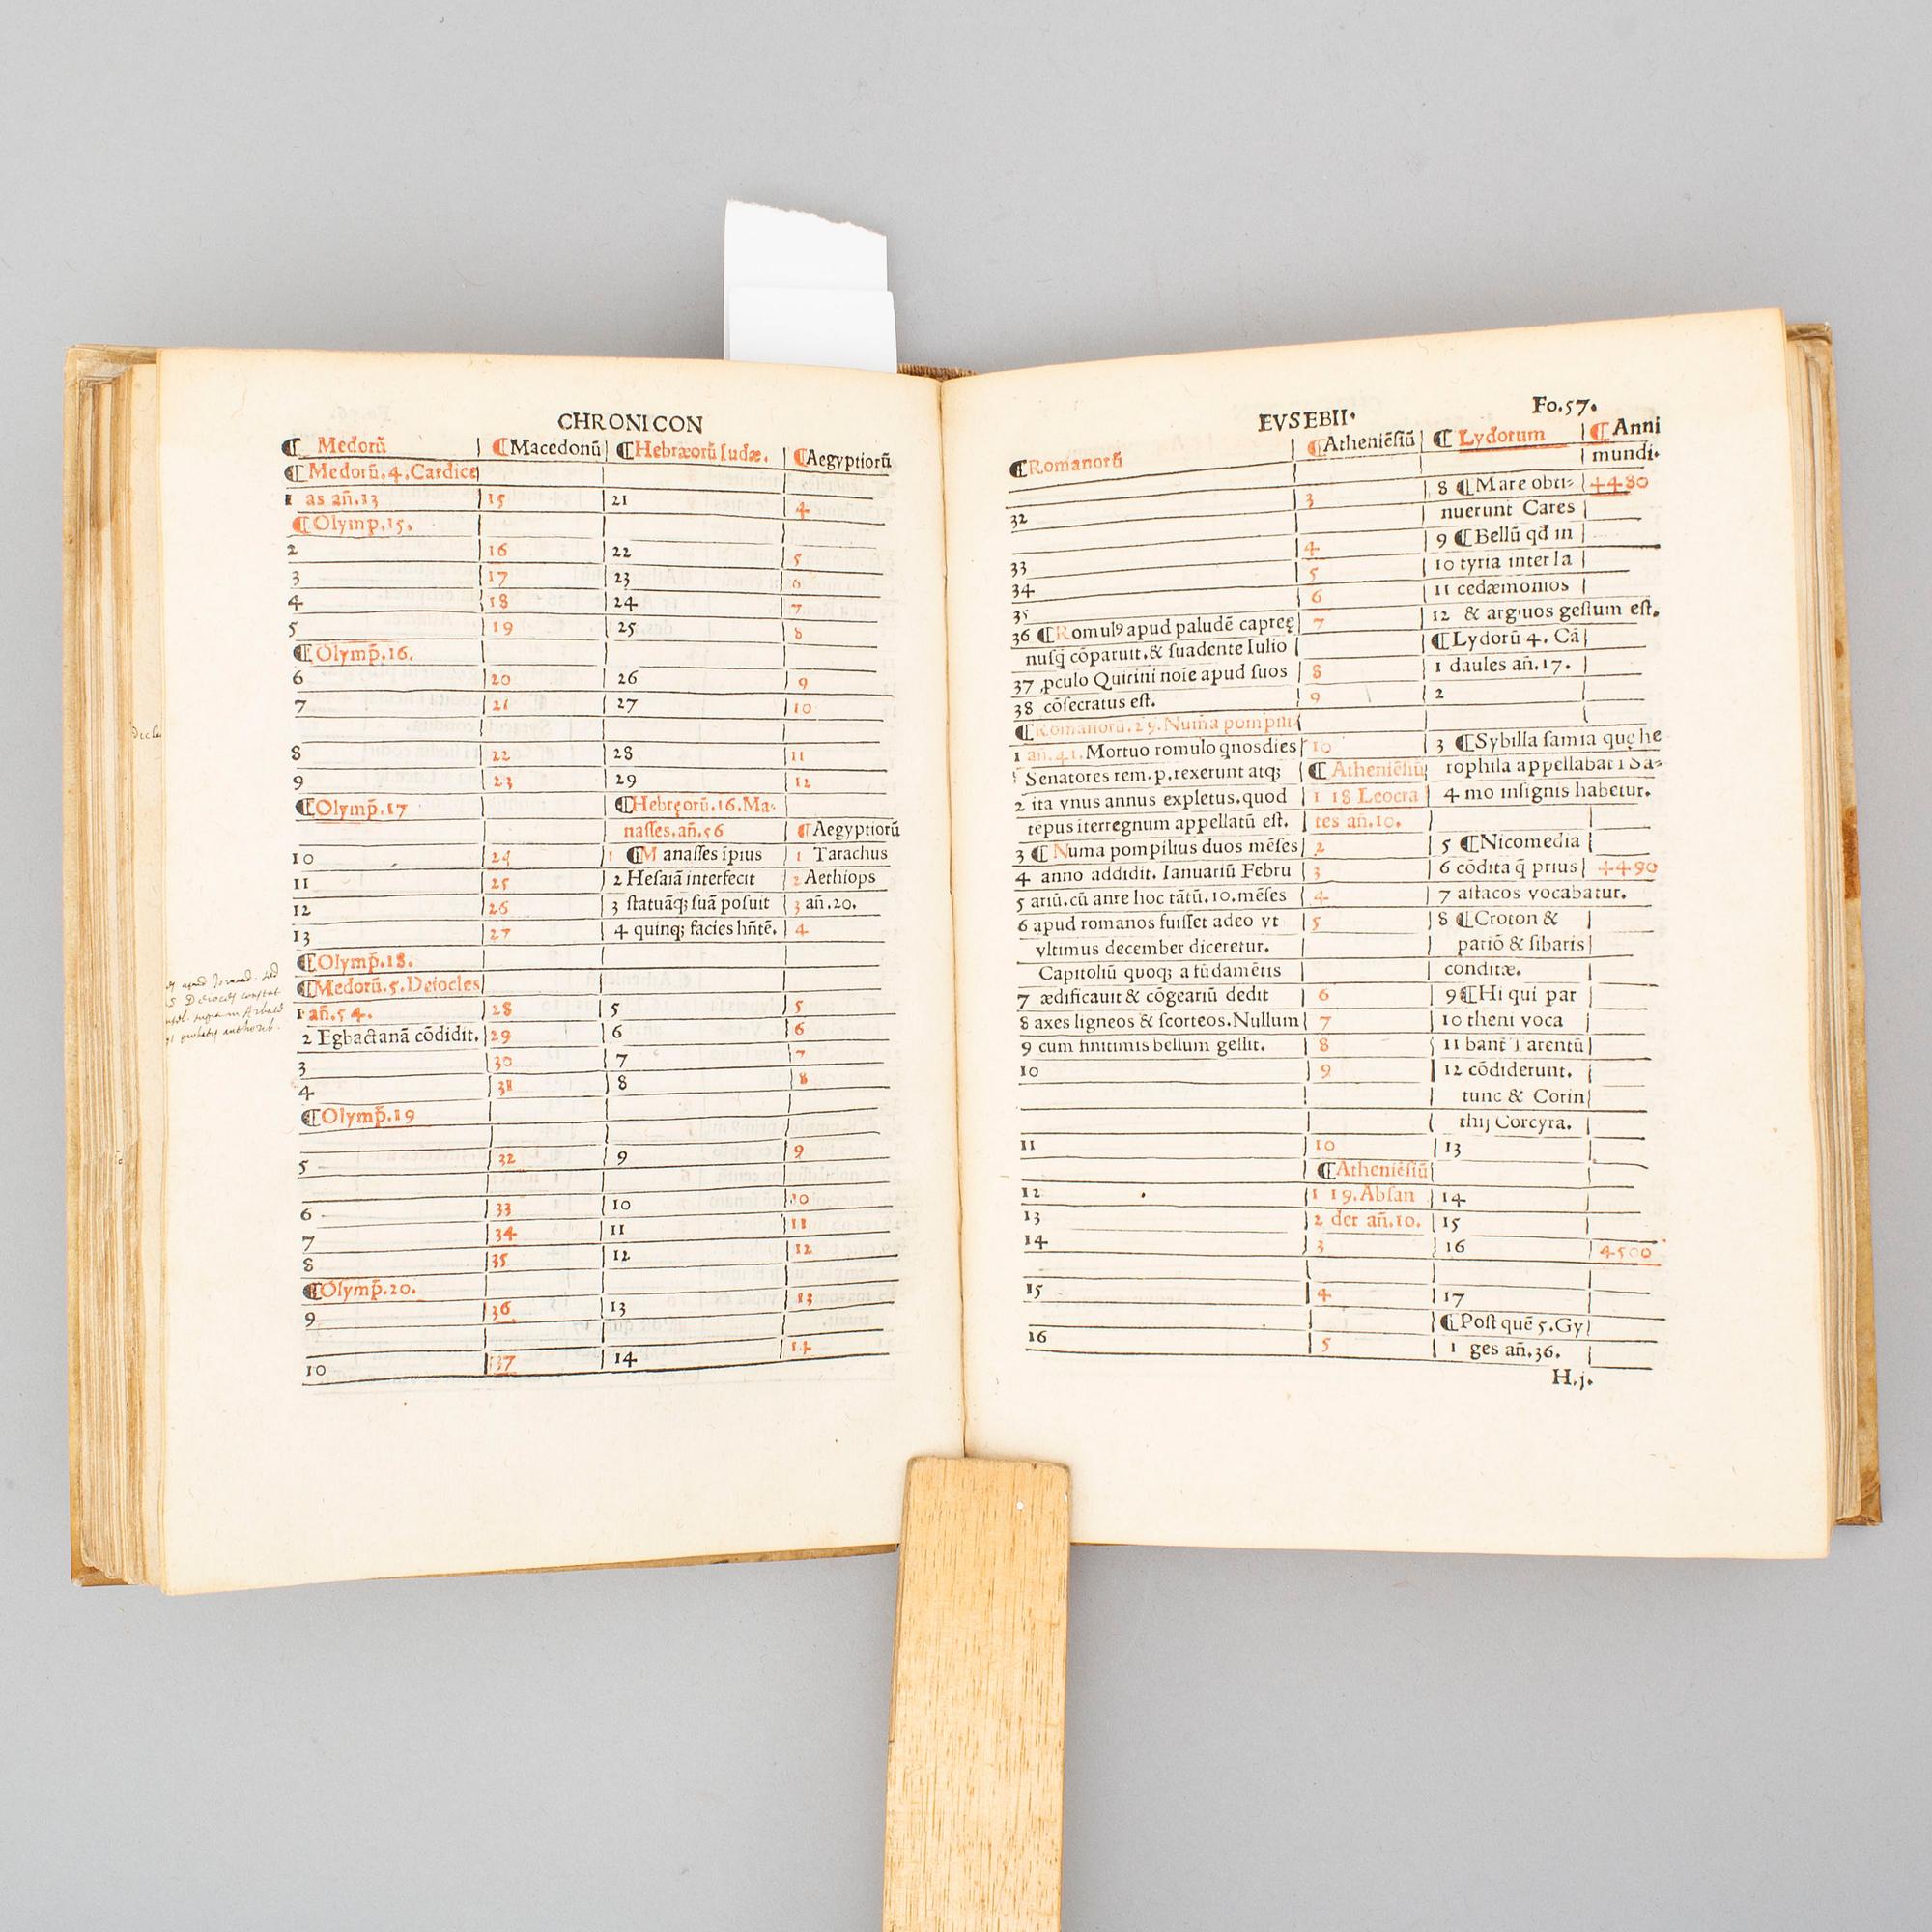 CHRONICON
¶ Medorū ¶Macedonū ¶Hebræorū Iudæ. ¶Aegyptiorū
¶Medorū.4.Cardice
1 as añ.13 15 21 4
¶Olymp̄.15.
2 16 22 5
3 17 23 6
4 18 24 7
5 19 25 8
¶Olymp̄.16.
6 20 26 9
7 21 27 10
8 22 28 11
9 23 29 12
¶Olymp̄.17 ¶Hebręorū.16.Ma-
nasses.añ.56 ¶Aegyptiorū
10 24 1 ¶Manasses īpius 1 Tarachus
11 25 2 Hesaiā interfecit 2 Aethiops
12 26 3 statuāq; suā posuit 3 añ.20.
13 27 4 quinq; facies hñtē. 4
¶Olymp̄.18.
¶Medorū.5.Deiocles
1 añ.54. 28 5 5
2 Egbactanā cōdidit. 29 6 6
3 30 7 7
4 31 8 8
¶Olymp̄.19
5 32 9 9
6 33 10 10
7 34 11 11
8 35 12 12
¶Olymp̄.20.
9 36 13 13
10 37 14 14
EVSEBII. Fo.57.
¶Romanorū ¶Atheniēsiū ¶ Lydorum ¶Anni
mundi.
32 3 8 ¶Mare obti- 4480
nuerunt Cares
33 4 9 ¶Bellū qđ in
34 5 10 tyria inter la
35 6 11 cedæmonios
36 ¶Romulꝰ apud paludē capreę 7 12 & argiuos gestum est.
nusq̄ cōparuit.& suadente Iulio ¶Lydorū 4. Cā
37 ꝓculo Quirini noīe apud suos 8 1 daules añ.17.
38 cōsecratus est. 9 2
¶Romanorū.29.Numa pompili
1 añ.41. Mortuo romulo qnosdies 10 3 ¶Sybilla samia quę he
Senatores rem.p.rexerunt atq; ¶Atheniēsiū rophila appellabat ī Sa-
2 ita vnus annus expletus.quod 1 18 Leocra 4 mo insignis habetur.
tēpus iterregnum appellatū est. tes añ.10.
3 ¶Numa pompilius duos mēses 2 5 ¶Nicomedia
4 anno addidit. Ianuariū Febru 3 6 cōdita q̄ prius 4490
5 ariū.cū anre hoc tātū.10.mēses 4 7 astacos vocabatur.
6 apud romanos fuisset adeo vt 5 8 ¶Croton &
vltimus december diceretur. pariō & sibaris
Capitoliū quoq; a fūdamētis conditæ.
7 ædificauit & cōgeariū dedit 6 9 ¶Hi qui par
8 axes ligneos & scorteos.Nullum 7 10 theni voca
9 cum finitimis bellum gessit. 8 11 bant̄ Tarentū
10 9 12 cōdiderunt.
tunc & Corin
thij Corcyra.
11 10 13
¶Atheniēsiū
12 1 19.Absan 14
13 2 der añ.10. 15
14 3 16 4500
15 4 17
¶Post quē 5.Gy
16 5 1 ges añ.36.
H.j.